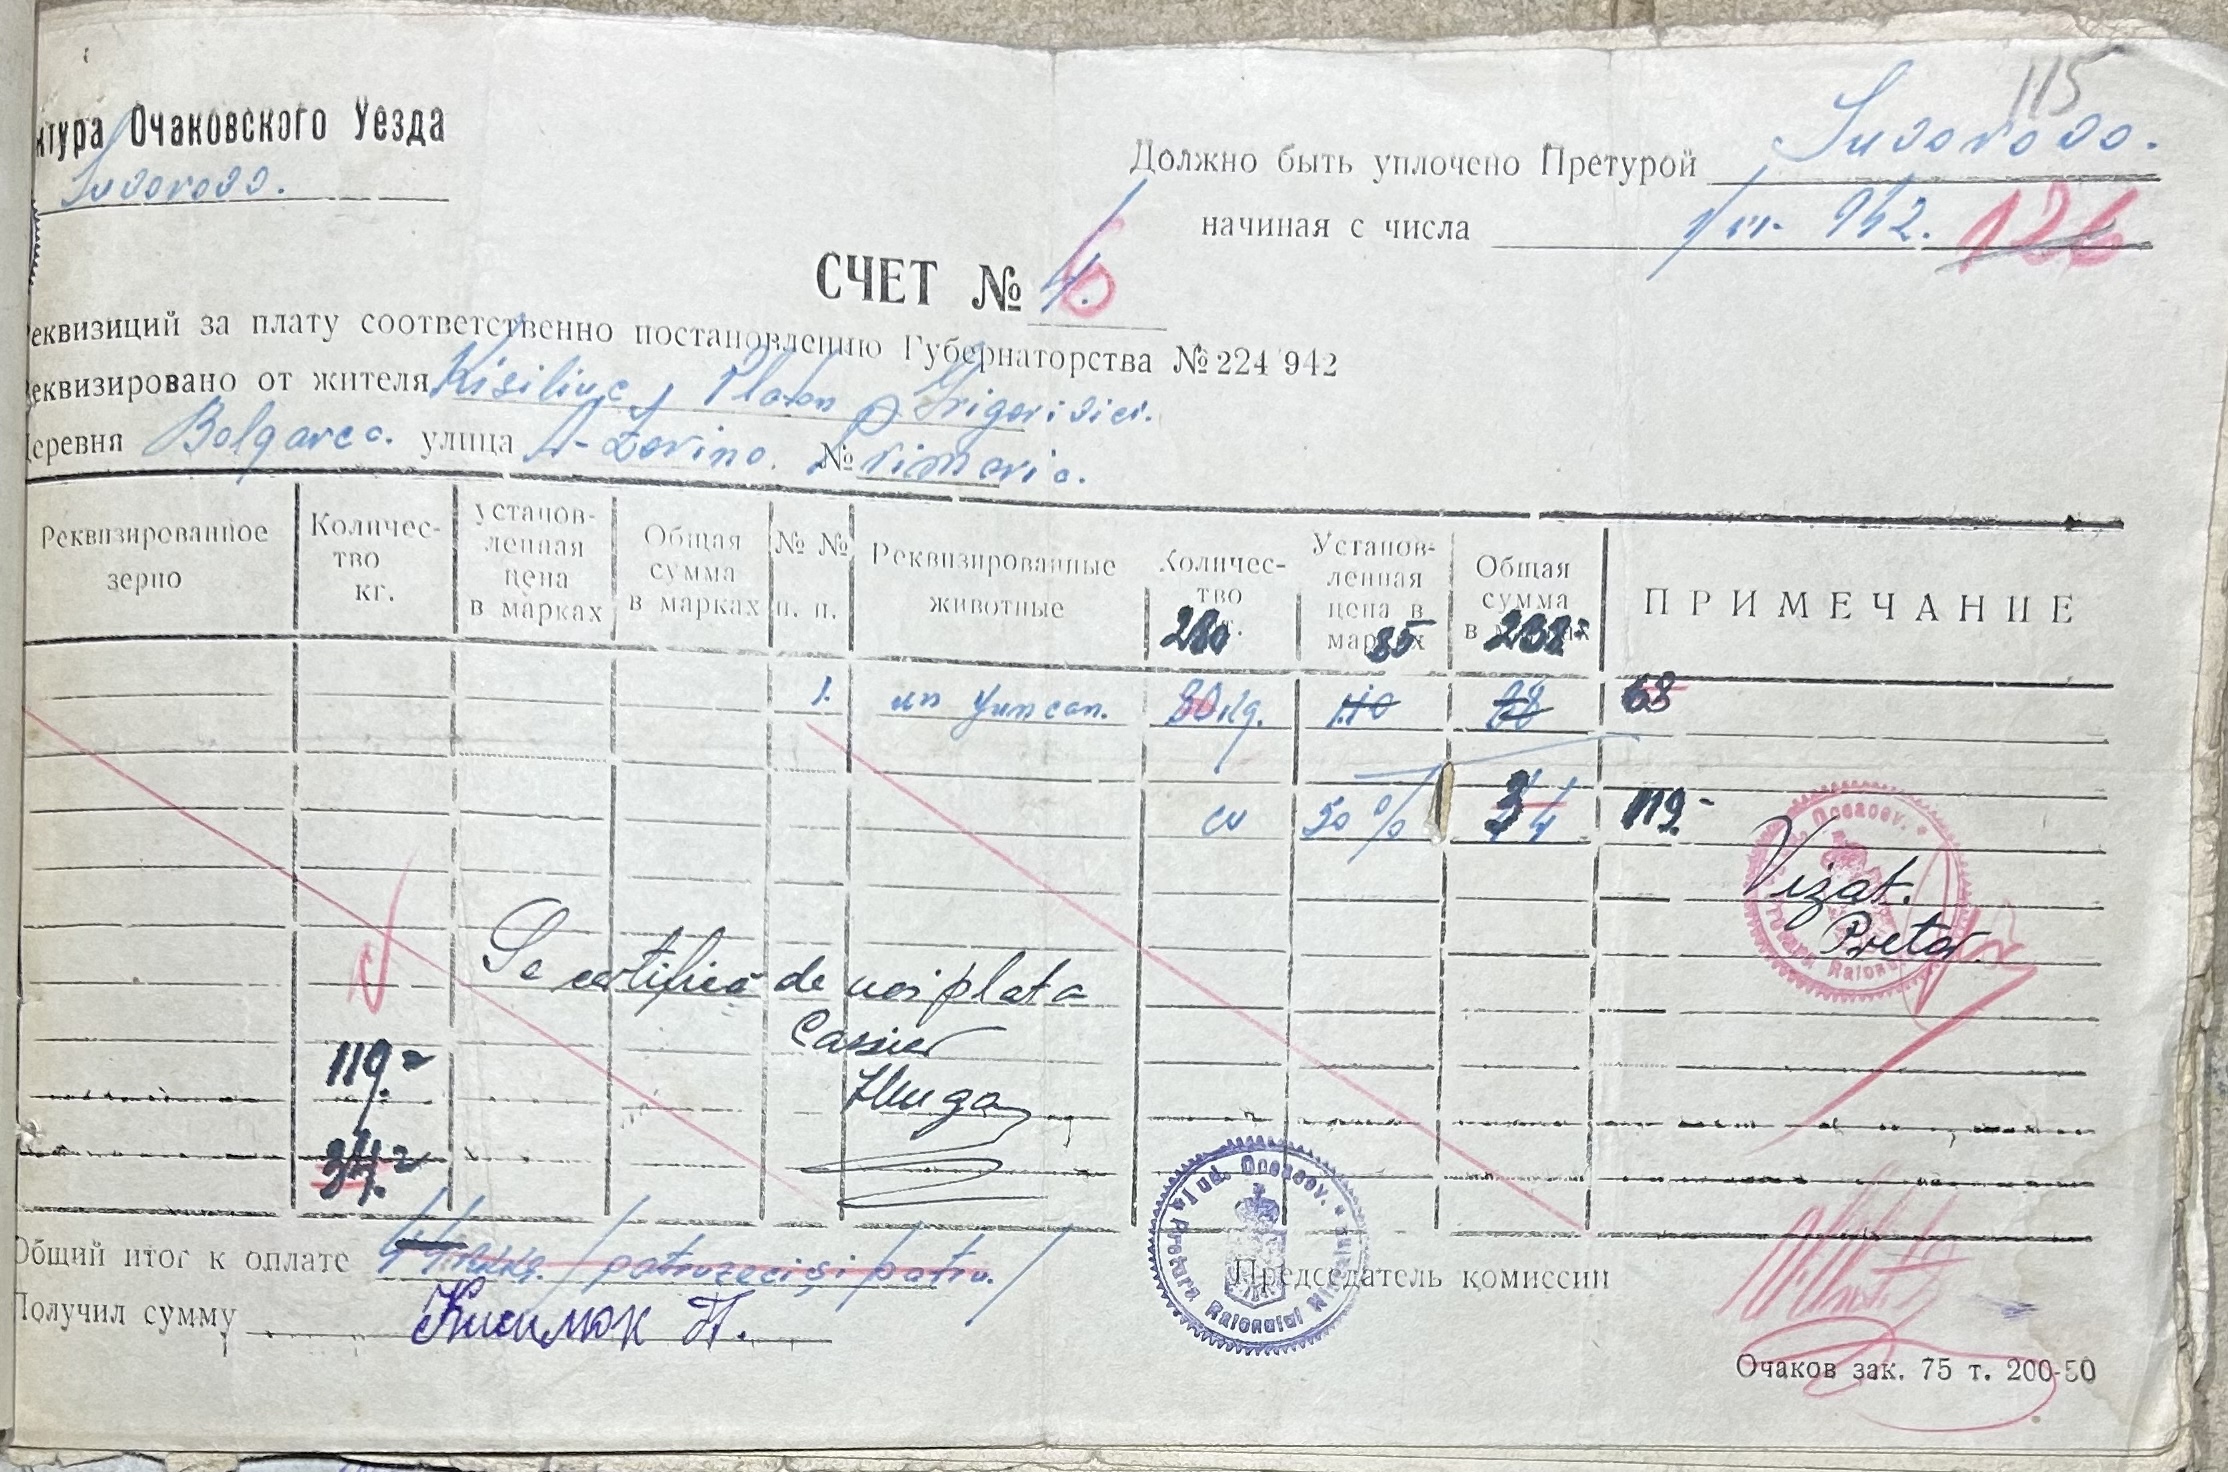 115
ктура Очаковского Уезда
Suvorovo.
Должно быть уплочено Претурой Suvorovo.
начиная с числа 1/III. 942. 126
СЧЕТ №
еквизиций за плату соответственно постановлению Губернаторства № 224 942
еквизировано от жителя Kisiliuc, Platon Grigorivici.
деревня Bolgarca. улица № Primaria.
Реквизированное зерно
Количес-тво кг.
установ-ленная цена в марках
Общая сумма в марках
№ № п. п.
Реквизированные животные
Количес-тво 280
Установ-ленная цена в марках 85
Общая сумма в марках 238=
ПРИМЕЧАНИЕ
1. un juncan. 80 kg. 1.10 88 68
cu 50 % 34 119-
Vizat.
Pretor.
Se certifică de noi plata
Cassier
119.=
34.=
Общий итог к оплате 44 /patruzeci și patru./
Председатель комиссии
Получил сумму Кисилюк П.
Jud. Oceacov. * Pretura Raionului
Очаков зак. 75 т. 200-50